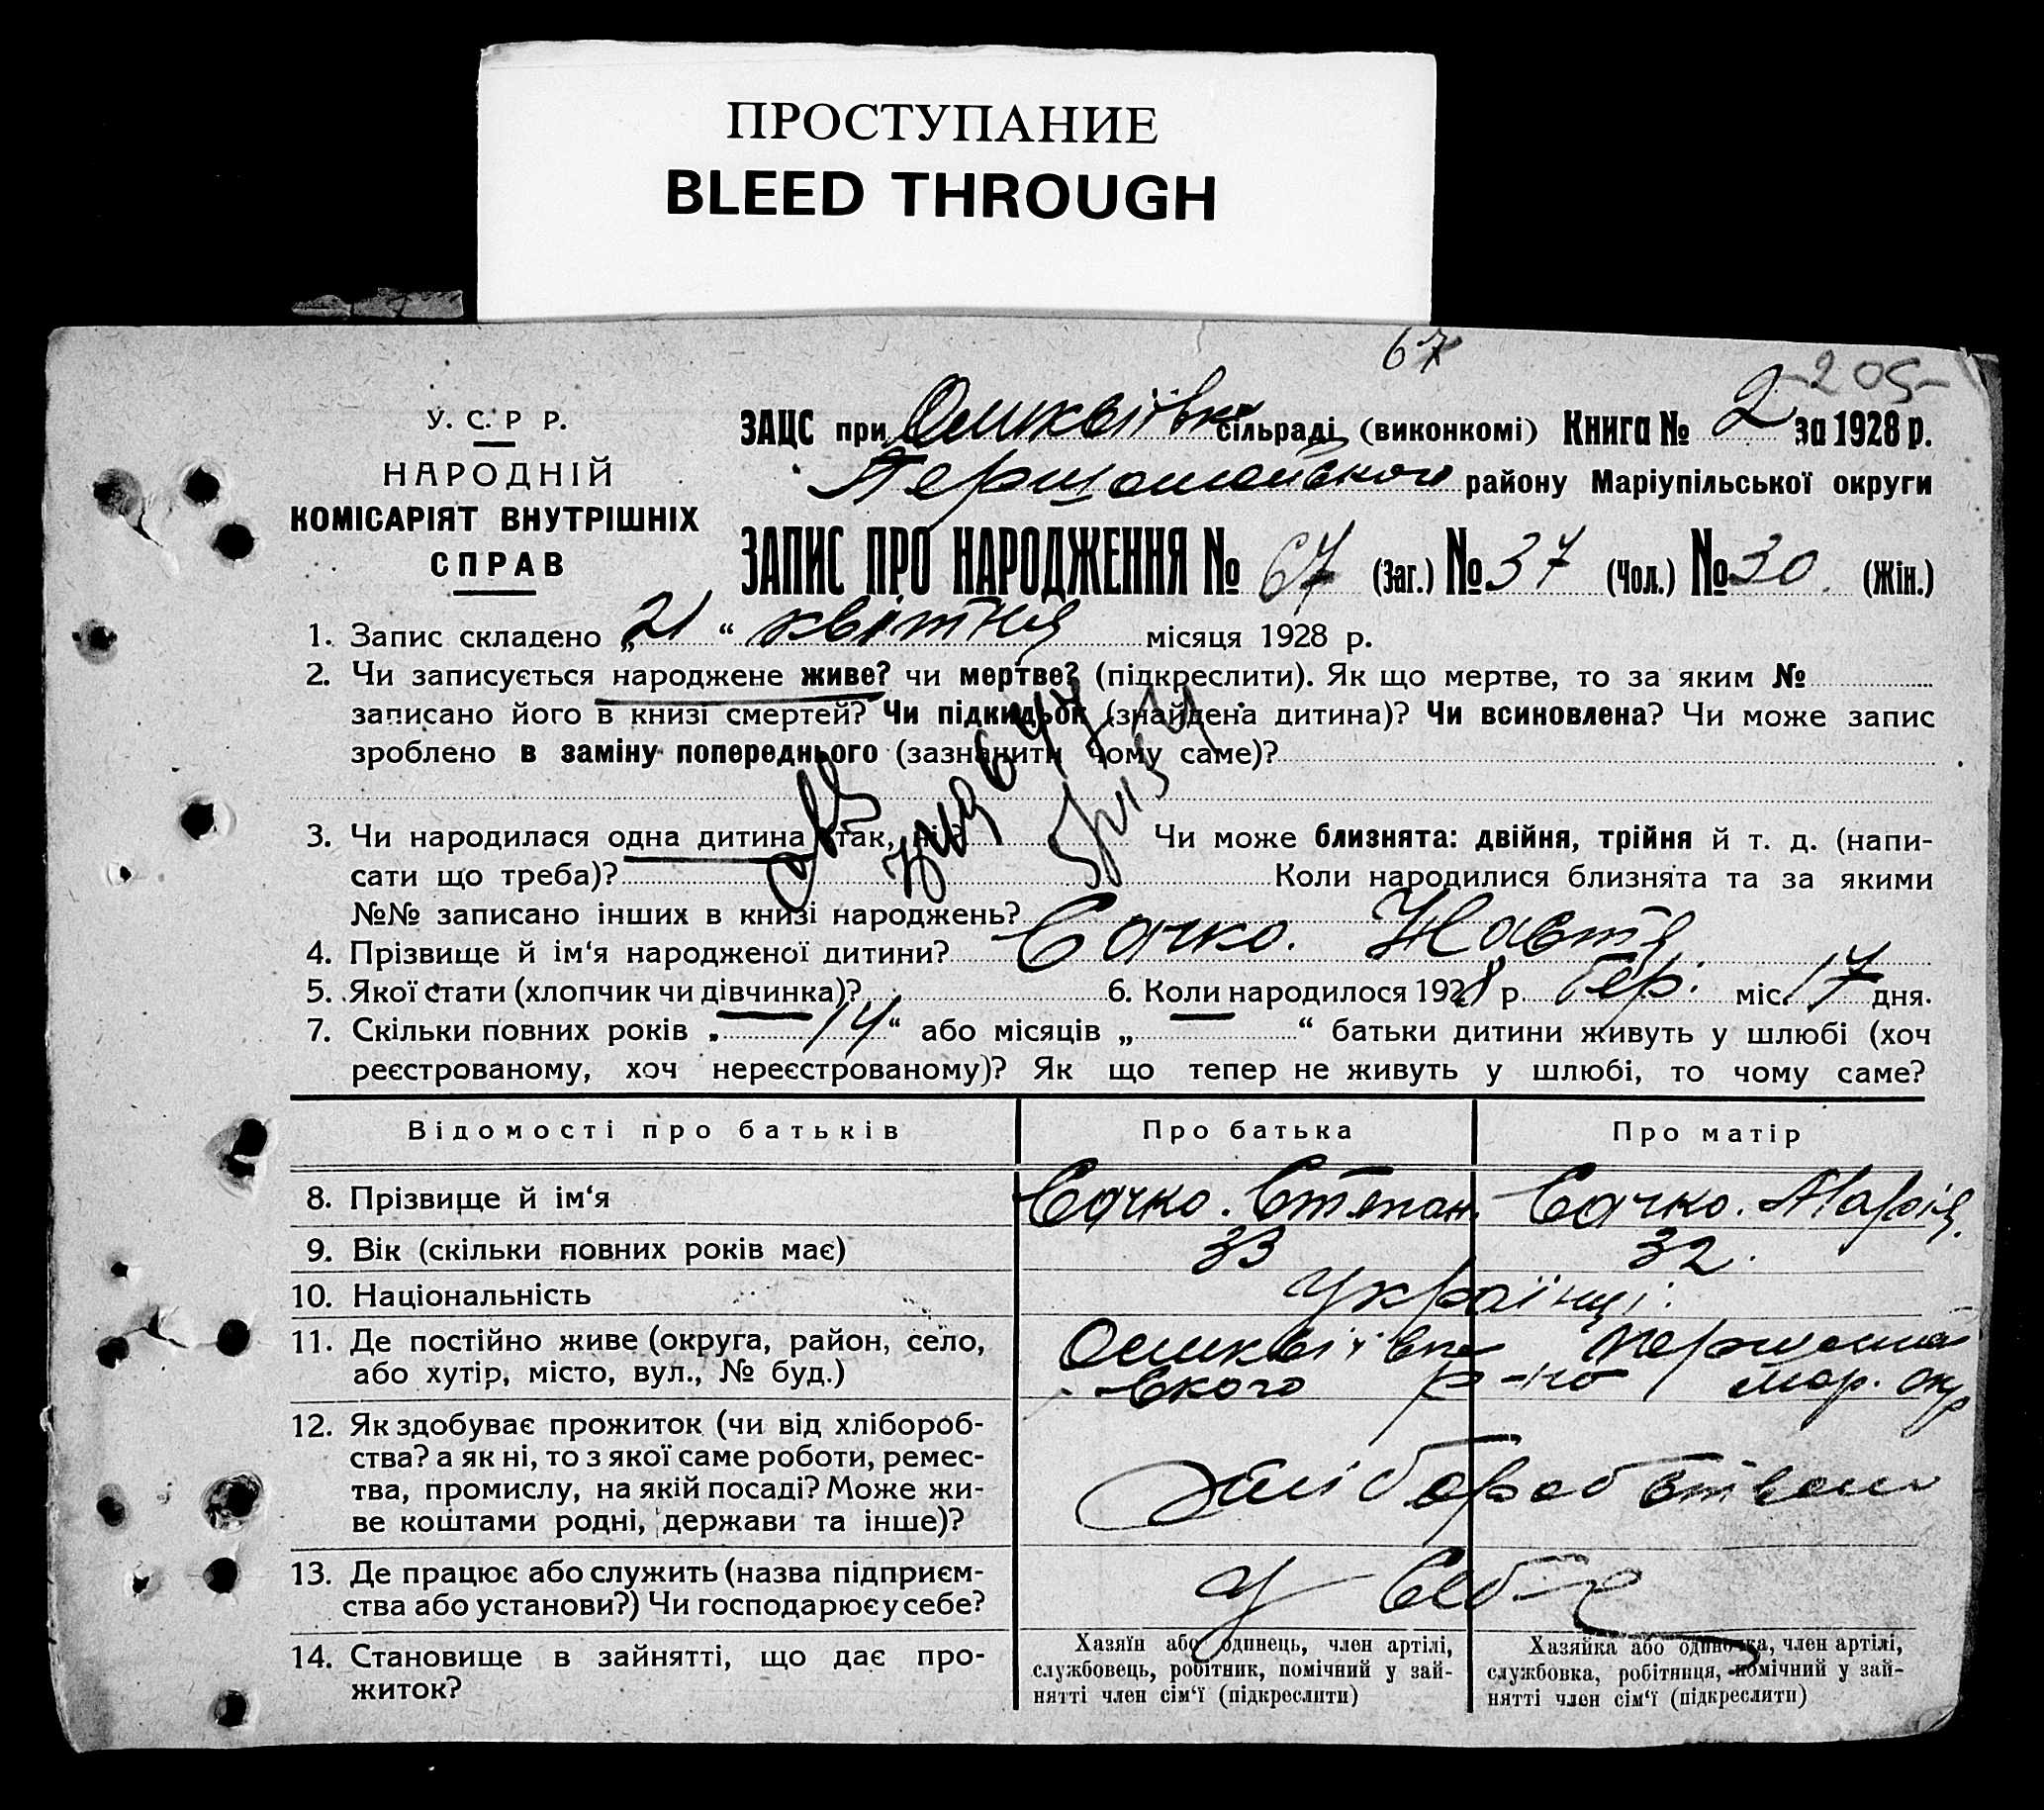 ПРОСТУПАНИЕ
BLEED THROUGH
67
-205-
У. С. Р Р.
НАРОДНІЙ
КОМІСАРІЯТ ВНУТРІШНІХ
СПРАВ
ЗАЦС при сільраді (виконкомі) Книга № 2 за 1928 р.
Першомайського району Маріупільської округи
ЗАПИС ПРО НАРОДЖЕННЯ № 67 (Заг.) № 37 (Чол.) № 30 (Жін.)
1. Запис складено „21“ квітня місяця 1928 р.
2. Чи записується народжене живе? чи мертве? (підкреслити). Як що мертве, то за яким №
записано його в книзі смертей? Чи підкидьок (знайдена дитина)? Чи всиновлена? Чи може запис
зроблено в заміну попереднього (зазначити чому саме)?
3. Чи народилася одна дитина (так, ні)? Чи може близнята: двійня, трійня й т. д. (напи-
сати що треба)? Коли народилися близнята та за якими
№№ записано інших в книзі народжень?
4. Прізвище й ім‘я народженої дитини? Сачко.
5. Якої стати (хлопчик чи дівчинка)? 6. Коли народилося 1928 р. бер. міс. 17 дня.
7. Скільки повних років „14“ або місяців „ “ батьки дитини живуть у шлюбі (хоч
реєстрованому, хоч нереєстрованому)? Як що тепер не живуть у шлюбі, то чому саме?
Відомості про батьків Про батька Про матір
8. Прізвище й ім‘я Сачко. Степан. Сачко. Марія.
9. Вік (скільки повних років має) 33 32.
10. Національність Українці.
11. Де постійно живе (округа, район, село,
або хутір, місто, вул., № буд.) р-но мар. окр
12. Як здобуває прожиток (чи від хлібороб-
ства? а як ні, то з якої саме роботи, ремес-
тва, промислу, на якій посаді? Може жи-
ве коштами родні, держави та інше)? Хліборобством
13. Де працює або служить (назва підприєм-
ства або установи?) Чи господарює у себе? у себе
14. Становище в зайнятті, що дає про-
житок?
Хазяїн або одинець, член артілі,
службовець, робітник, помічний у зай-
нятті член сім‘ї (підкреслити)
Хазяйка або одиночка, член артілі,
службовка, робітниця, помічний у зай-
нятті член сім‘ї (підкреслити)